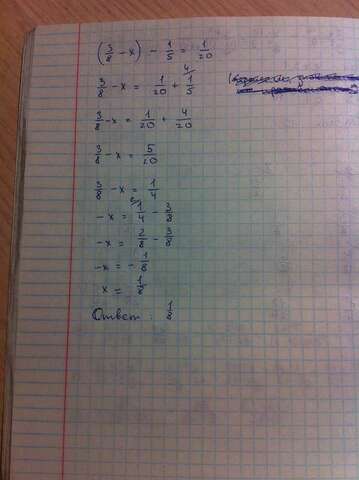 (3/8 - x) - 1/5 = 1/20
3/8 - x = 1/20 + 4/ 1/5
3/8 - x = 1/20 + 4/20
3/8 - x = 5/20
3/8 - x = 1/4
- x = 2/ 1/4 - 3/8
- x = 2/8 - 3/8
- x = - 1/8
x = 1/8
Ответ: 1/8